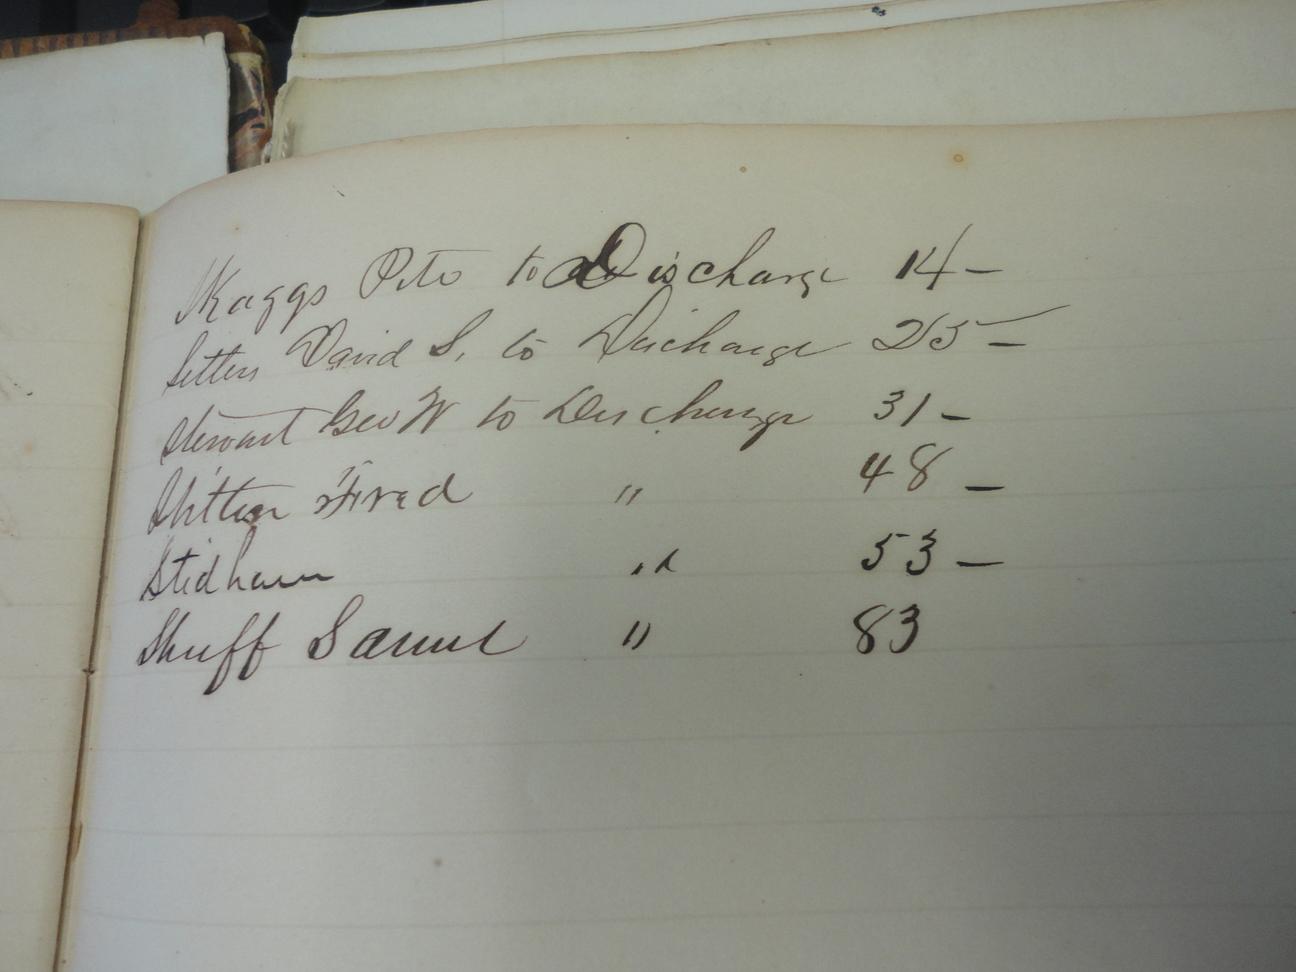 Skaggs Pete to Discharge 14 -
Setters David S. to Discharge 25 -
Stewart Geo W to Discharge 31 -
Fred " 48 -
Stidham " 53 -
Shuff Samuel " 83